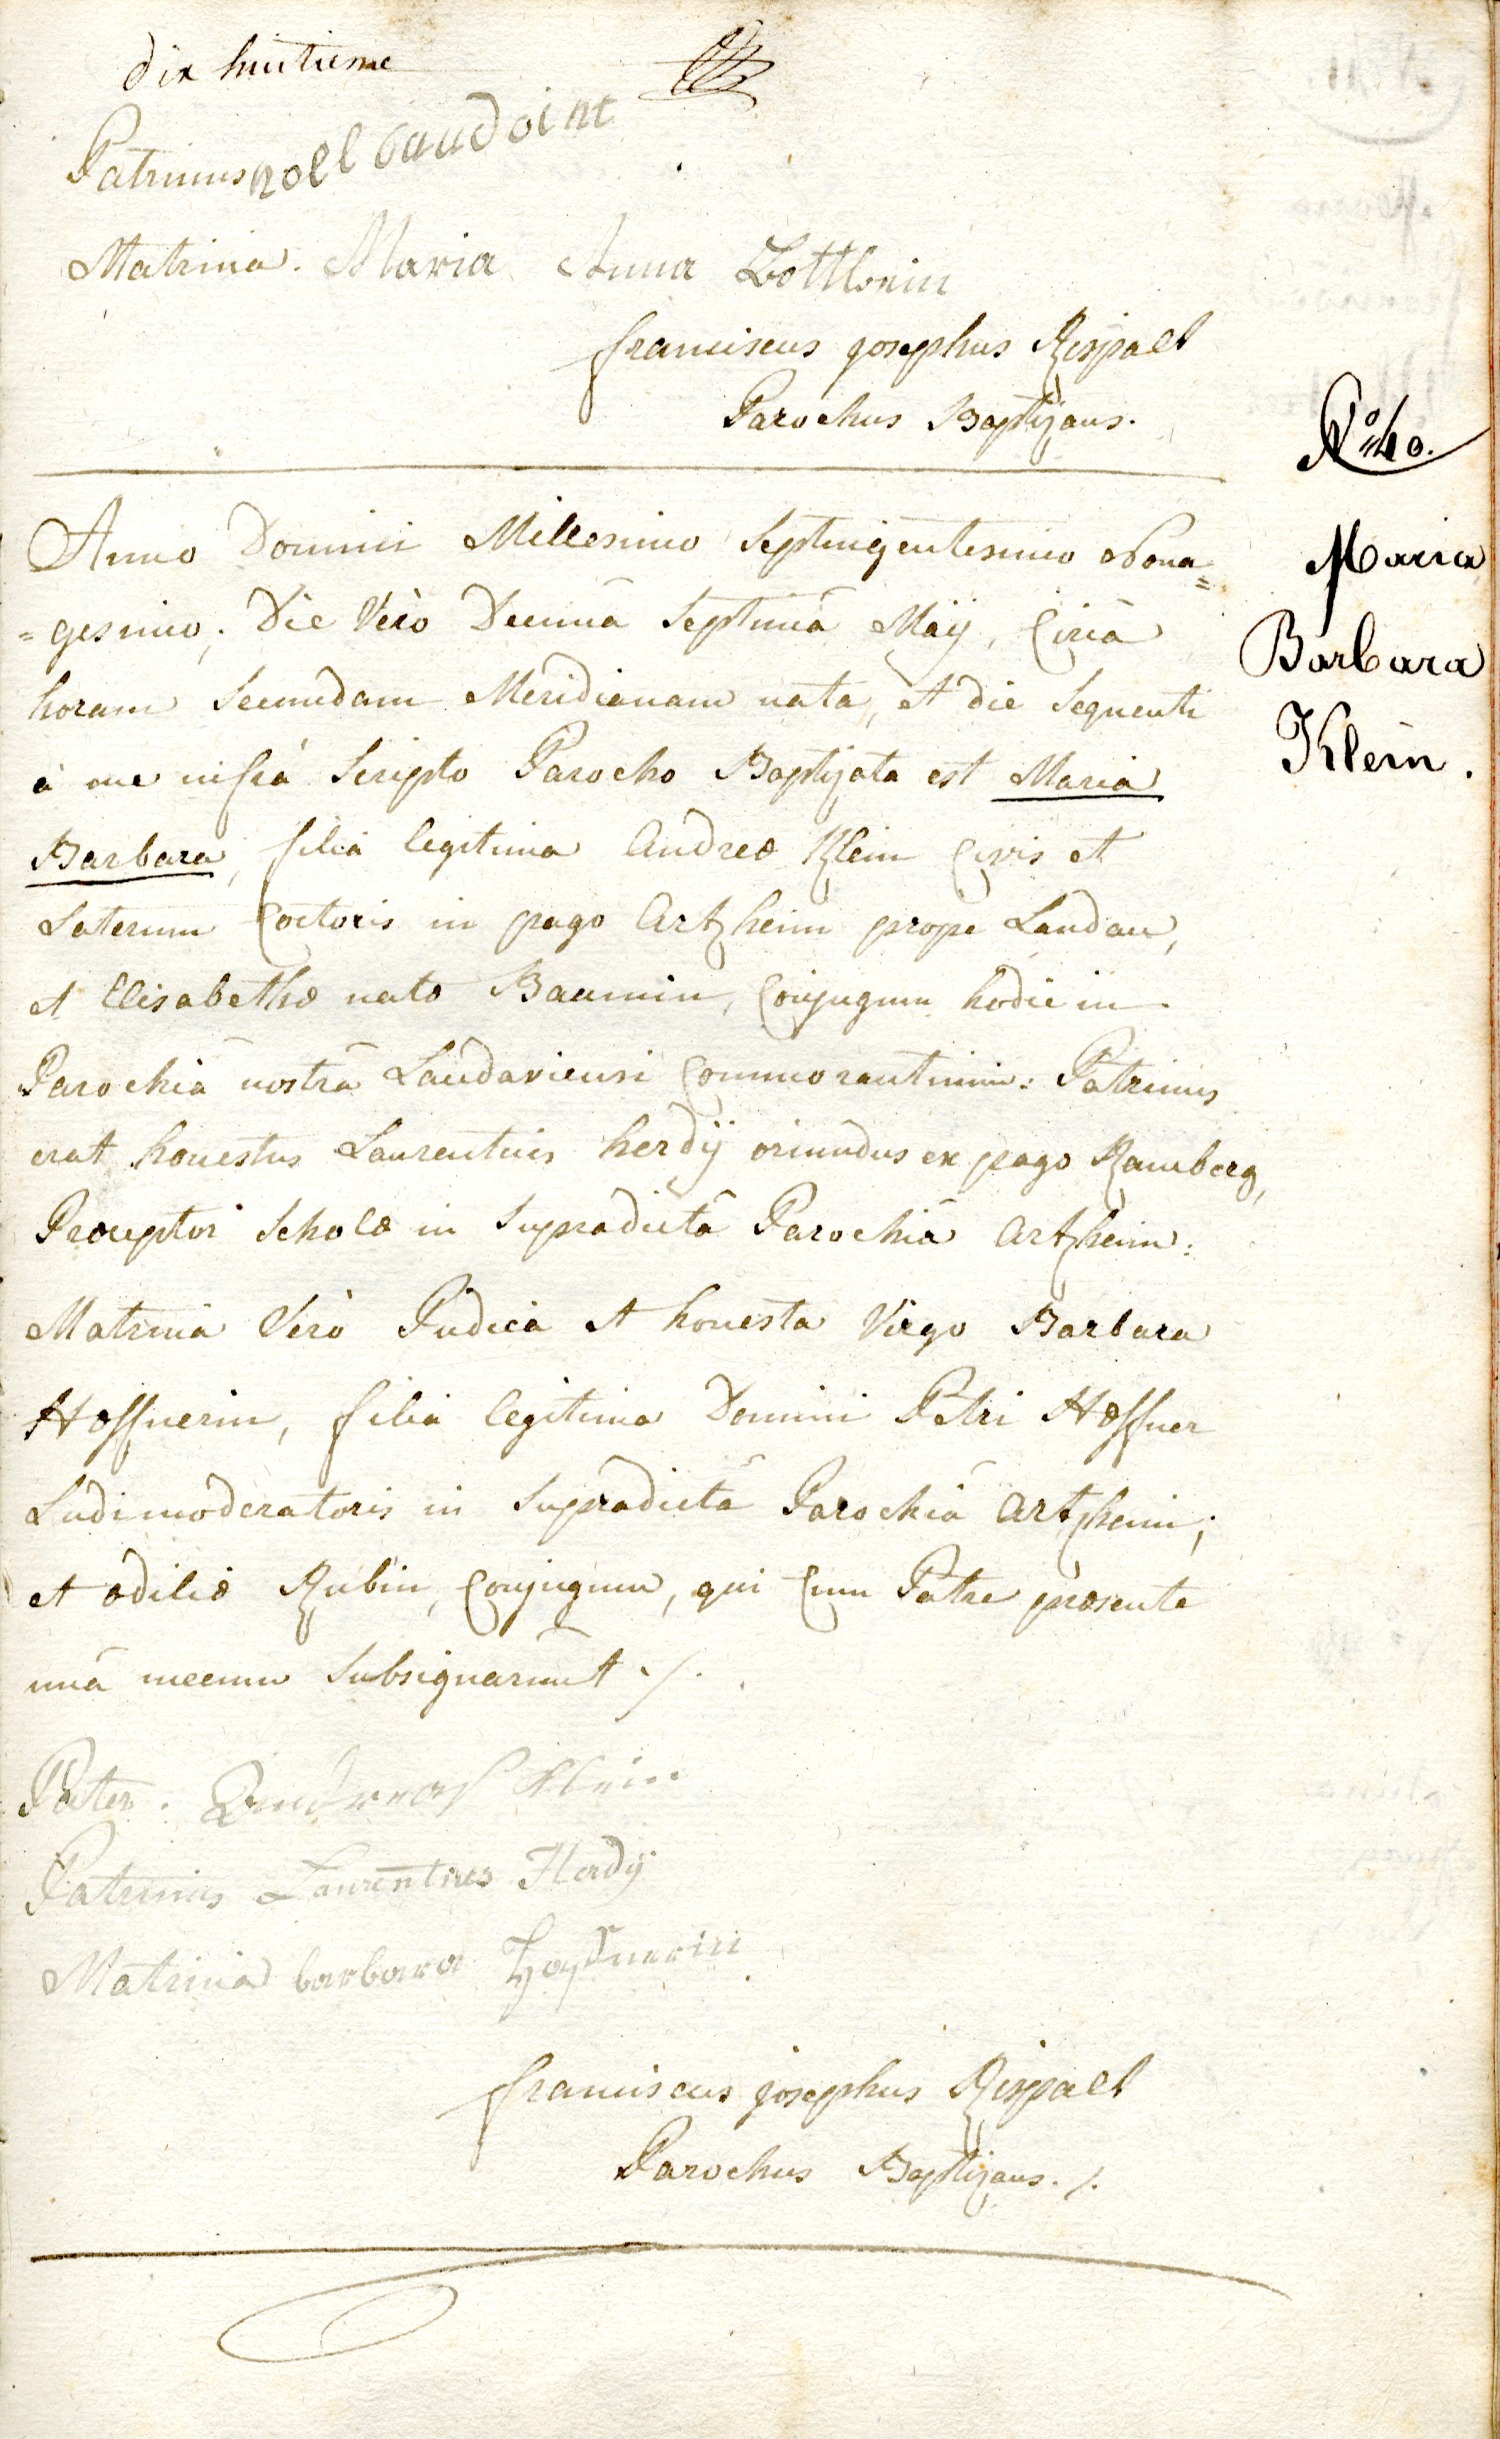 dix huitieme
Patrinus noel baudoint
Matrina. Maria Anna Bottlerin
franciscus josephus Rispall
Parochus Baptizans.
N.º 40.
Maria
Barbara
Klein.
Anno Domini Millesimo Septingentesimo Nona=
=gesimo, Die Verò Decimâ Septimâ Maÿ, Circà
horam Secundam Meridianam nata, et die Sequenti
à me infrà Scripto Parocho Baptizata est Maria
Barbara, filia legitima Andreæ Klein Civis et
Laterum Coctoris in pago Artzheim prope Landau,
et Elisabethæ natæ Baumin, Conjugum hodie in
Parochiâ nostrâ Landaviensi Commorantium: Patrinus
erat honestus Laurentius herdÿ oriundus ex pago Ramberg,
Præceptor Scholæ in Supradictâ Parochiâ Artzheim:
Matrina Verò Pudica et honesta Virgo Barbara
Hoffnerin, filia legitima Domini Petri Hoffner
Ludimoderatoris in Supradictâ Parochiâ Artzheim;
et odiliæ Rubin, Conjugum, qui Cum Patre præsente
unâ mecum Subsignarunt ./.
Pater. Andreas Klein
Patrinus Laurentius Hady
Matrina barbara Hoffnerin
franciscus josephus Rispall
Parochus Baptizans ./.